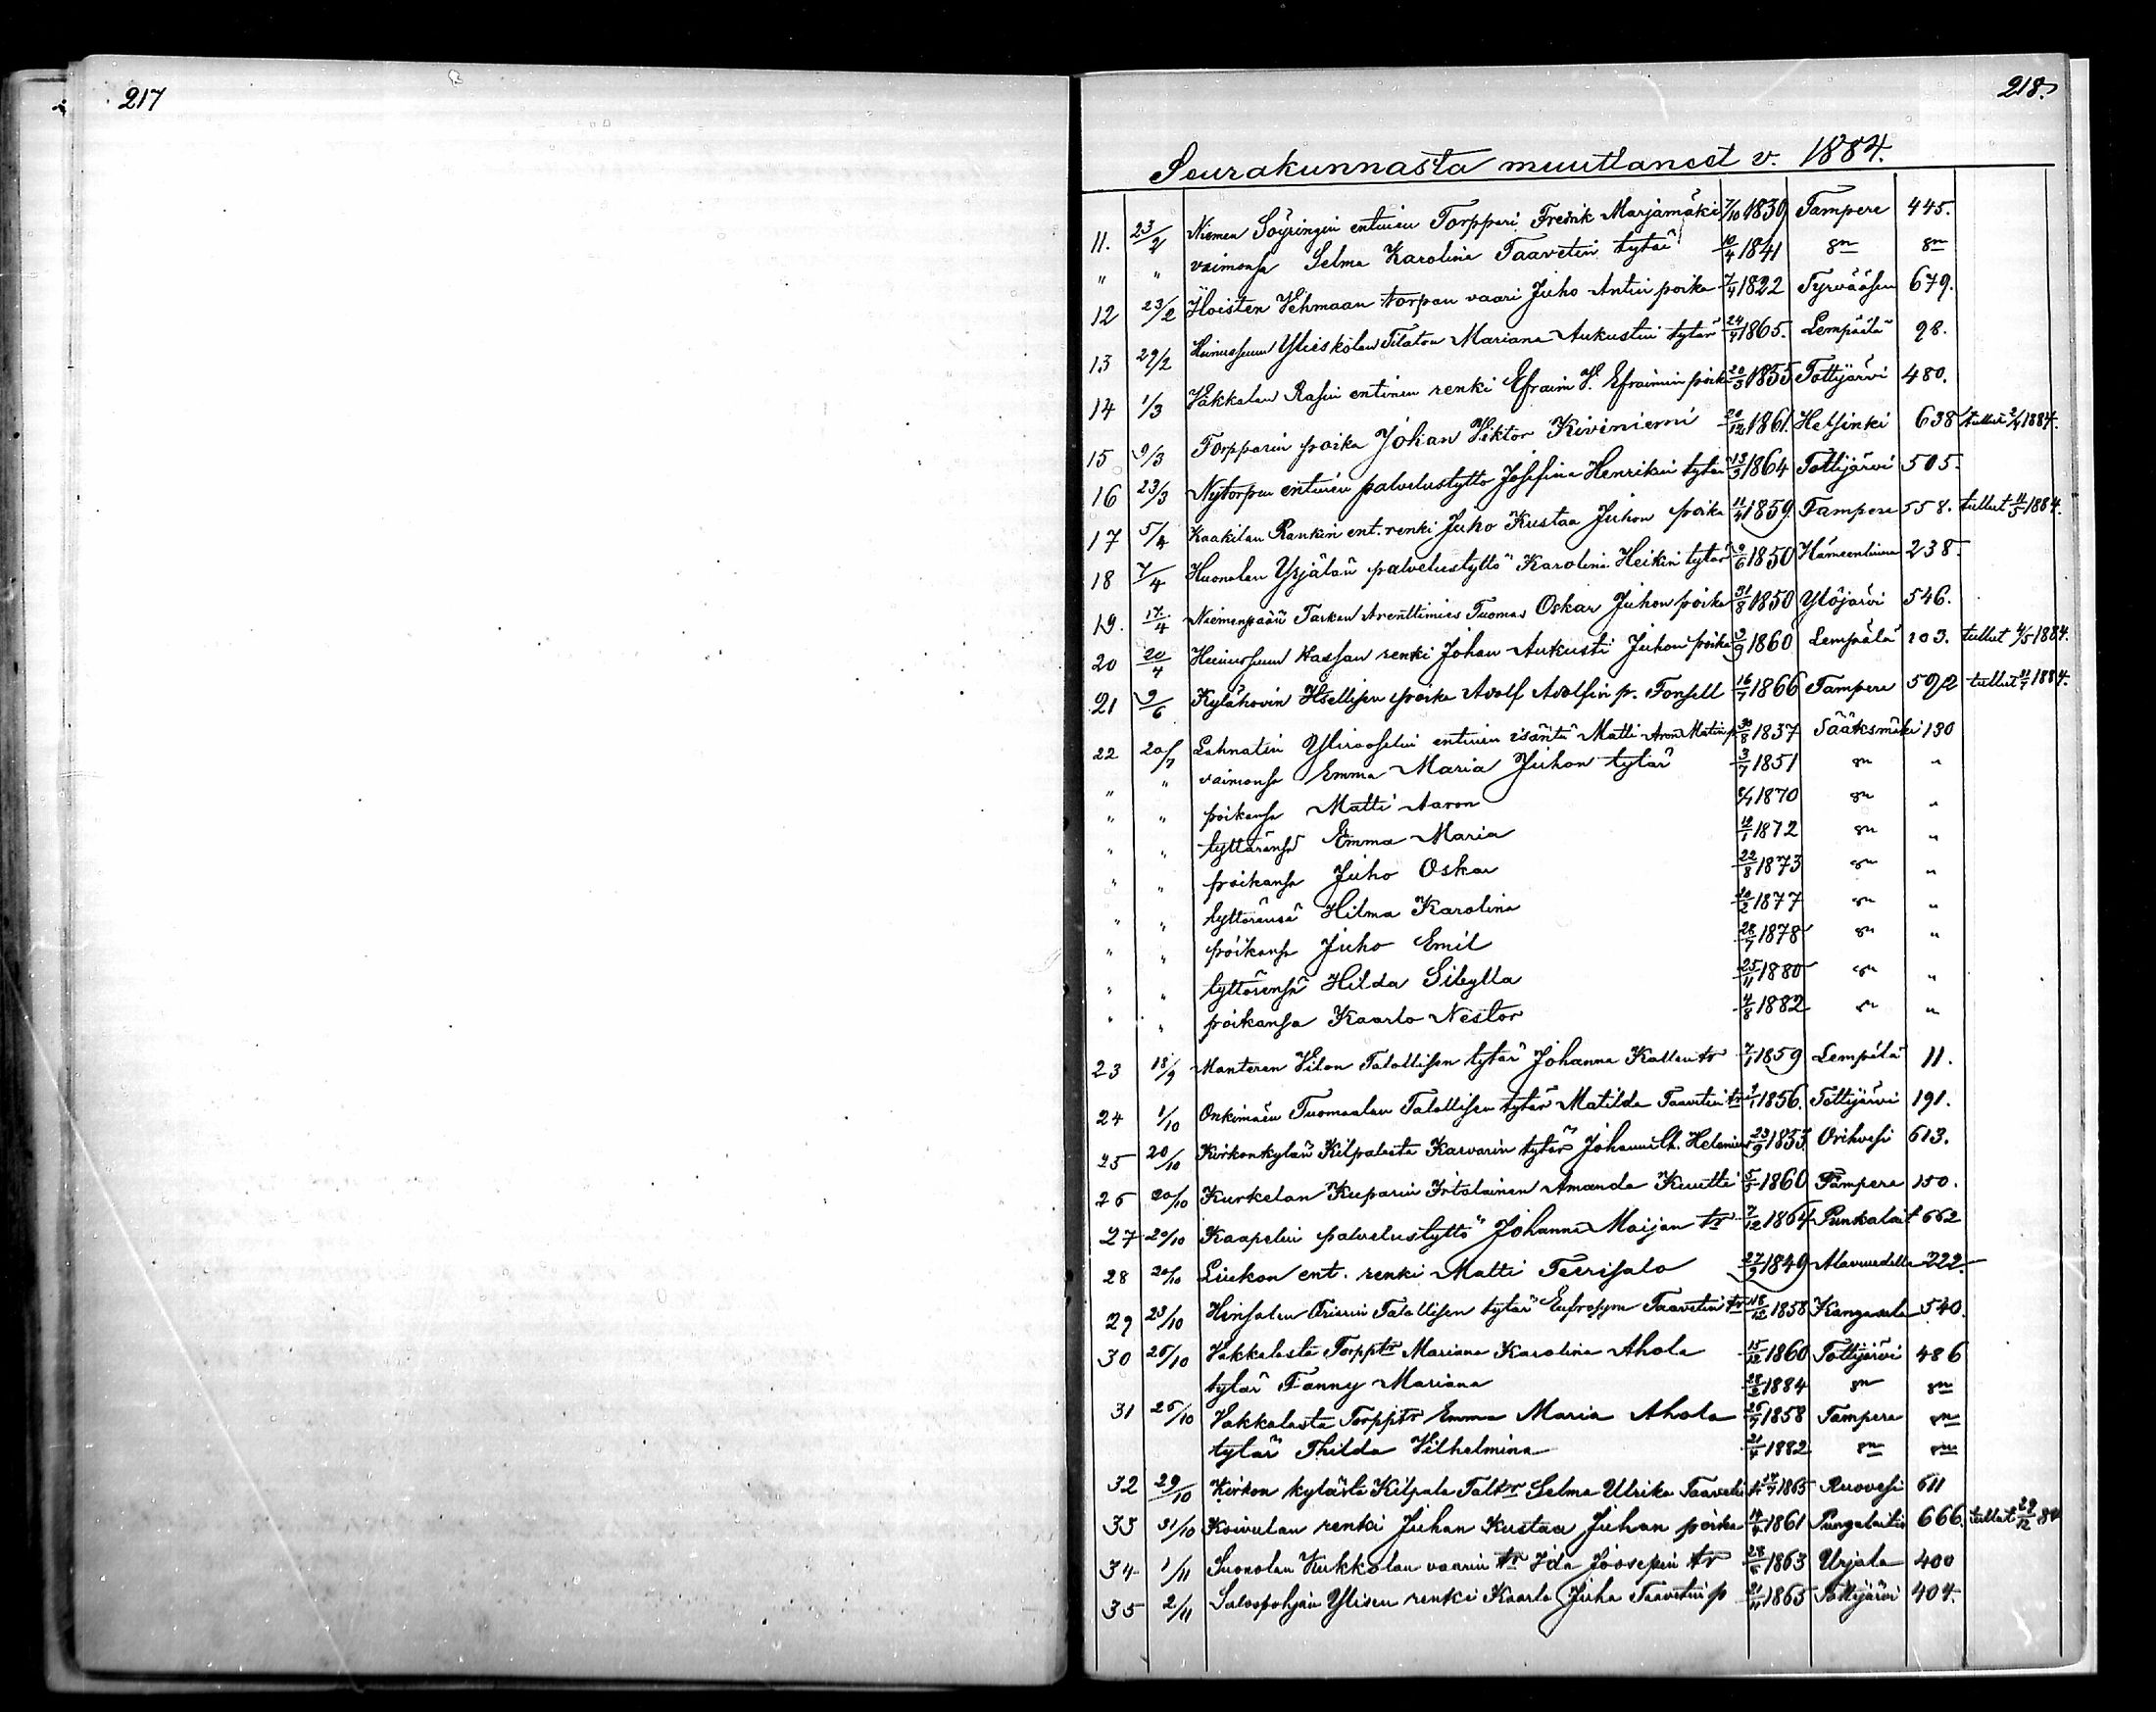 217
218.
Seurakunnasta muuttaneet v. 1884.
11. 23/2 Niemen Söyringin entinen Torppari Fredrik Marjamäki 7/10 1839 Tampere 445.
" " vaimonsa Selma Karolina Taavetin tytär 10/4 1841 sn sn
12 23/2 Hoisten Vehmaan torpan vaari Juho Antin poika 7/4 1822 Tyrvääsen 679.
13 29/2 Yliskölan Mariana Aukustin tytär 24/4 1865. Lempäälä 98.
14 1/3 Väkkalan Rasin entinen renki Efraim V. Efraimin poika 20/3 1855 Tottijärvi 480.
15 9/3 Torpparin poika Johan Viktor Kiviniemi 20/12 1861. Helsinki 638 tullut 2/4 1884.
16 23/3 Nytorpan entinen palvelustyttö Josefina Henrikin tytär 13/3 1864 Tottijärvi 505.
17 5/4 Kaakilan Rankin ent. renki Juho Kustaa Juhon poika 11/4 1859. Tampere 558. tullut 11/5 1884.
18 7/4 Huonolan Yrjälän palvelustyttö Karolina Heikin tytär 9/6 1850 Hämeenlinna 238.
19. 17/4 Niemenpään Tarkan Arenttimies Tuomas Oskar Juhon poika 31/8 1850 Ylöjärvi 546.
20 20/4 Hassan renki Johan Aukusti Juhon poika 3/9 1860 Lempäälä 103. tullut 4/5 1884.
21 9/6 Kylähovin Itsellisen poika Adolf Adolfin p. Fonsell 16/7 1866 Tampere 592 tullut 21/7 1884.
22 20/7 Lahnatin entinen isäntä Matti Aron Matin p. 30/8 1837 Sääksmäki 130
" " vaimonsa Emma Maria Juhon tytär 3/7 1851 sn "
" " poikansa Matti Aaron 8/4 1870 sn "
" " tyttärensä Emma Maria 19/1 1872 sn "
" " poikansa Juho Oskar 22/8 1873 sn "
" " tyttärensä Hilma Karolina 10/2 1877 sn "
" " poikansa Juho Emil 28/7 1878 sn "
" " tyttärensä Hilda Sibylla 25/11 1880 sn "
" " poikansa Kaarlo Nestor 4/8 1882 sn "
23 18/9 Manteren Vilon Talollisen tytär Johanna Kallen tr 7/1 1859 Lempäälä 11.
24 1/10 Onkimäen Tuomaalan Talollisen tytär Matilda Taavetin tr 1/1 1856. Tottijärvi 191.
25 20/10 Kirkonkylän Kilpalasta Karvarin tytär Helenius 23/9 1853. Orihvesi 613.
26 20/10 Kurkelan Kuparin Irtolainen Amanda Kuutti 5/5 1860 Tampere 150.
27 20/10 Kaapelin palvelustyttö Johanna Maijan tr 7/12 1864 Punkalait 662
28 20/10 Liukon ent. renki Matti Terrisalo 27/9 1849 222.
29 23/10 Hinsalan Talollisen tytär Eufrosyne Taavetin tr 18/12 1858 Kangasala 540.
30 25/10 Vakkalasta Torpptr Mariana Karolina Ahola 15/12 1860 Tottijärvi 486
tytär Fanny Mariana 28/2 1884 sn sn
31 25/10 Vakkalasta Torpptr Emma Maria Ahola 26/7 1858 Tampere sn
tytär Thilda Vilhelmina 21/4 1882 sn sn
32 29/10 Kirkon kylästä Kilpala Taltr Selma Ulrika Taavetin tr 1865 Ruovesi 611
33 31/10 Koivulan renki Juhan Kustaa Juhan poika 14/4 1861 Pungalaitio 666. tullut 29/12 84
34 1/11 Suonolan Kukkolan vaarin tr Ida Joosepin tr 28/5 1863 Urjala 400
35 2/11 Salospohjan Ylisen renki Kaarlo Juha Taavetin p 21/11 1865 Tottijärvi 404.